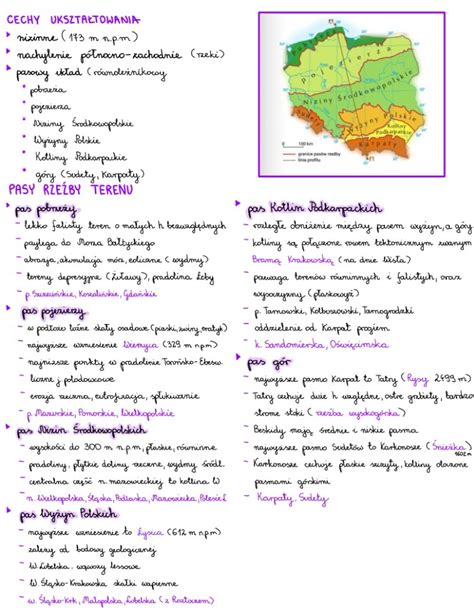 CECHY UKSZTAŁTOWANIA
nizinne (173 m n.p.m)
nachylenie północno-zachodnie (rzeki)
pasowy układ (równoleżnikowy
pobrzeża
pojezierza
Niziny Środkowopolskie
Wyżyny Polskie
Kotliny Podkarpackie
góry (Sudety, Karpaty)
Pobrzeża
Pojezierza
Niziny Środkowopolskie
Wyżyny Polskie
Kotliny
Podkarpackie
Sudety
Karpaty
0 100 km
granice pasów rzeźby
linia profilu
PASY RZEŹBY TERENU
pas pobrzeży
- lekko falisty teren o małych h bezwzględnych
przylega do Morza Bałtyckiego
- abrazja, akumulacja mórz, eoliczne (wydmy)
- tereny depresyjne (Żuławy), pradolina Łeby
- p. Szczecińskie, Koszalińskie, Gdańskie
pas pojezierzy
- w podłożu luźne skały osadowe (piaski, żwiry, eratyki)
- najwyższe wzniesienie Wieżyca (329 m npm)
- najniższe punkty w pradolinie Toruńsko-Ebersw.
- liczne j. polodowcowe
- erozja rzeczna, eutrofizacja, spłukiwanie
- p. Mazurskie, Pomorskie, Wielkopolskie
pas Nizin Środkowopolskich
- wysokości do 300 m n.p.m, płaskie, równinne
- pradoliny, płytkie doliny rzeczne, wydmy śródl.
- centralna część n. mazowieckiej to kotlina W
- n. Wielkopolska, Śląska, Podlaska, Mazowiecka, Polesie L
pas Wyżyn Polskich
- najwyższe wzniesienie to Łysica (612 m npm)
- zależą od budowy geologicznej
- W. Lubelska - wąwozy lessowe
- W. Śląsko-Krakowska skałki wapienne
- w. Śląsko-Krk, Małopolska, Lubelska (z Roztoczem)
pas Kotlin Podkarpackich
- rozległe obniżenie między pasem wyżyn, a góry
- kotliny są połączone rowem tektonicznym zwanym
Bramą Krakowską (na dnie Wisła)
- przewaga terenów równinnych i falistych, oraz
wysoczyzny (płaskowyż)
- p. Tarnowski, Kolbuszowski, Tarnogrodzki
- oddzielenie od Karpat progiem
- k. Sandomierska, Oświęcimska
pas gór
- najwyższe pasmo Karpat to Tatry (Rysy 2499 m)
- Tatry cechuje duże h względne, ostre grabiety, bardzo
strome stoki (rzeźba wysokogórska)
- Beskidy mają średnie i niskie pasma
- najwyższe pasmo Sudetów to Karkonosze (Śnieżka)
1602m
- Karkonosze cechuje płaskie szczyty, kotliny otoczone
pasmami górskimi
- Karpaty, Sudety